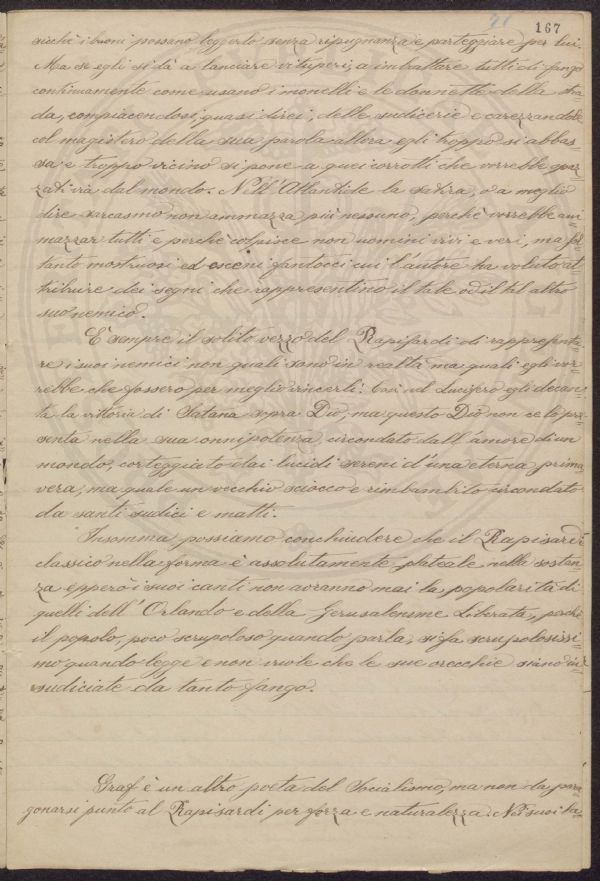 71 167
sicchè i buoni possano leggerlo senza ripugnanza e parteggiare per lui.
Ma se egli si dà a lanciare vituperi, a imbrattare tutti di fango
continuamente come usano i monelli e le donnette della stra=
da, compiacendosi, quasi direi, delle sudicerie e carezzandole
col magistero della sua parola allora egli troppo si abbas=
sa e troppo vicino si pone a quei corrotti che vorrebbe spaz=
zati via dal mondo. Nell'Atlantide la satira, o a meglio
dire sarcasmo non ammazza più nessuno, perchè vorrebbe am
mazzar tutti e perchè colpisce non uomini vivi e veri, ma sol
tanto mostruosi ed osceni fantocci cui l'autore ha voluto at
tribuire dei segni che rappresentino il tale od il tal altro
suo nemico.
È sempre il solito vezzo del Rapisardi di rappresenta
re i suoi nemici non quali sono in realtà ma quali egli vor
rebbe che fossero per meglio vincerli. Così nel Lucifero egli decan
ta la vittoria di Satana sopra Dio, ma questo Dio non ce lo pre
senta nella sua onnipotenza, circondato dall'amore d'un
mondo, corteggiato dai lucidi sereni d'una eterna prima
vera, ma quale un vecchio sciocco e rimbambito circondato
da santi sudici e matti.
Insomma possiamo conchiudere che il Rapisardi
classico nella forma è assolutamente plateale nella sostan=
za epperò i suoi canti non avranno mai la popolarità di
quelli dell'Orlando e della Gerusalemme Liberata, perchè
il popolo, poco scrupoloso quando parla, si fa scrupolosissi
mo quando legge e non vuole che le sue orecchie siano in=
sudiciate da tanto fango.
Graf è un altro poeta del Socialismo, ma non da para
gonarsi punto al Rapisardi per forza e naturalezza. Nei suoi